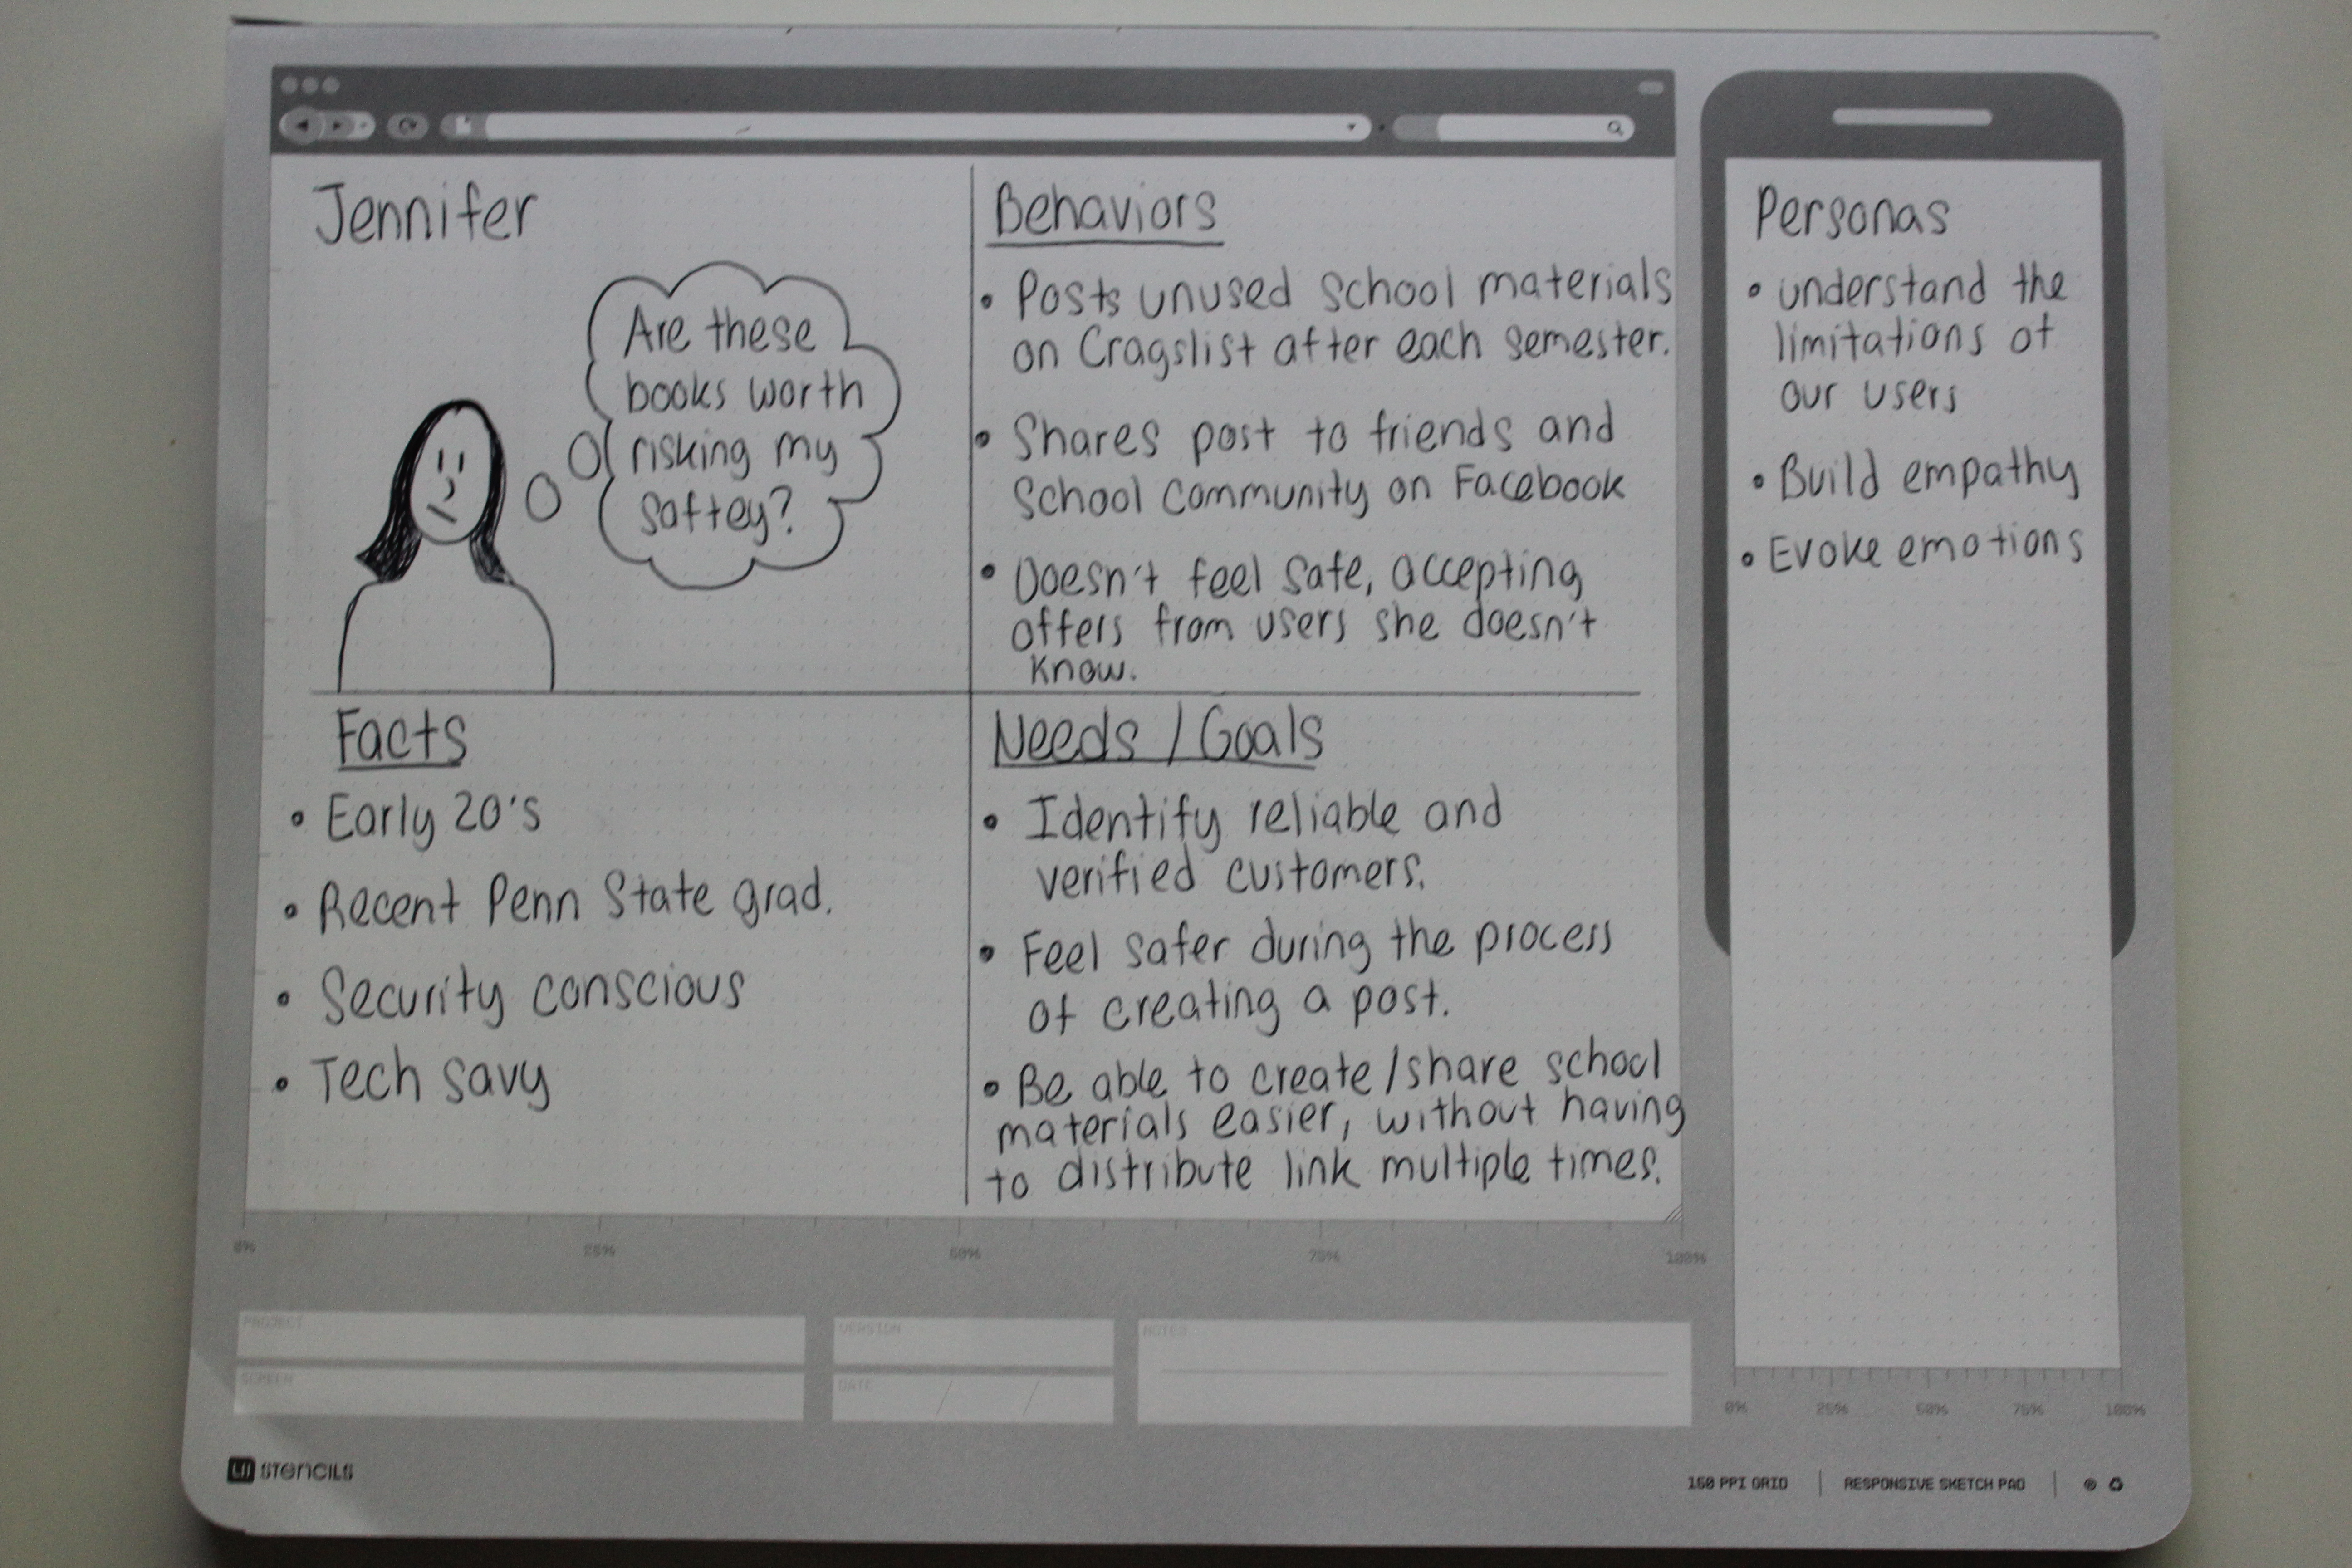 Jennifer
Are these
books worth
risking my
saftey?
Behaviors
• Posts unused school materials
on Cragslist after each semester.
• Shares post to friends and
School Community on Facebook
• Doesn't feel safe, accepting
offers from users she doesn't
know.
Facts
• Early 20's
• Recent Penn State grad.
• Security conscious
• Tech savy
Needs / Goals
• Identify reliable and
verified customers.
• Feel safer during the process
of creating a post.
• Be able to create/share school
materials easier, without having
to distribute link multiple times.
Personas
• understand the
limitations of
our users
• Build empathy
• Evoke emotions
0% 25% 50% 75% 100%
PROJECT
SCREEN
VERSION
DATE / /
NOTES
0% 25% 50% 75% 100%
UI STENCILS
150 PPI GRID | RESPONSIVE SKETCH PAD